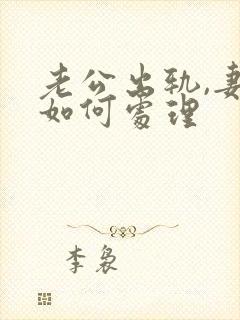 老公出轨,妻
如何处理
李袅